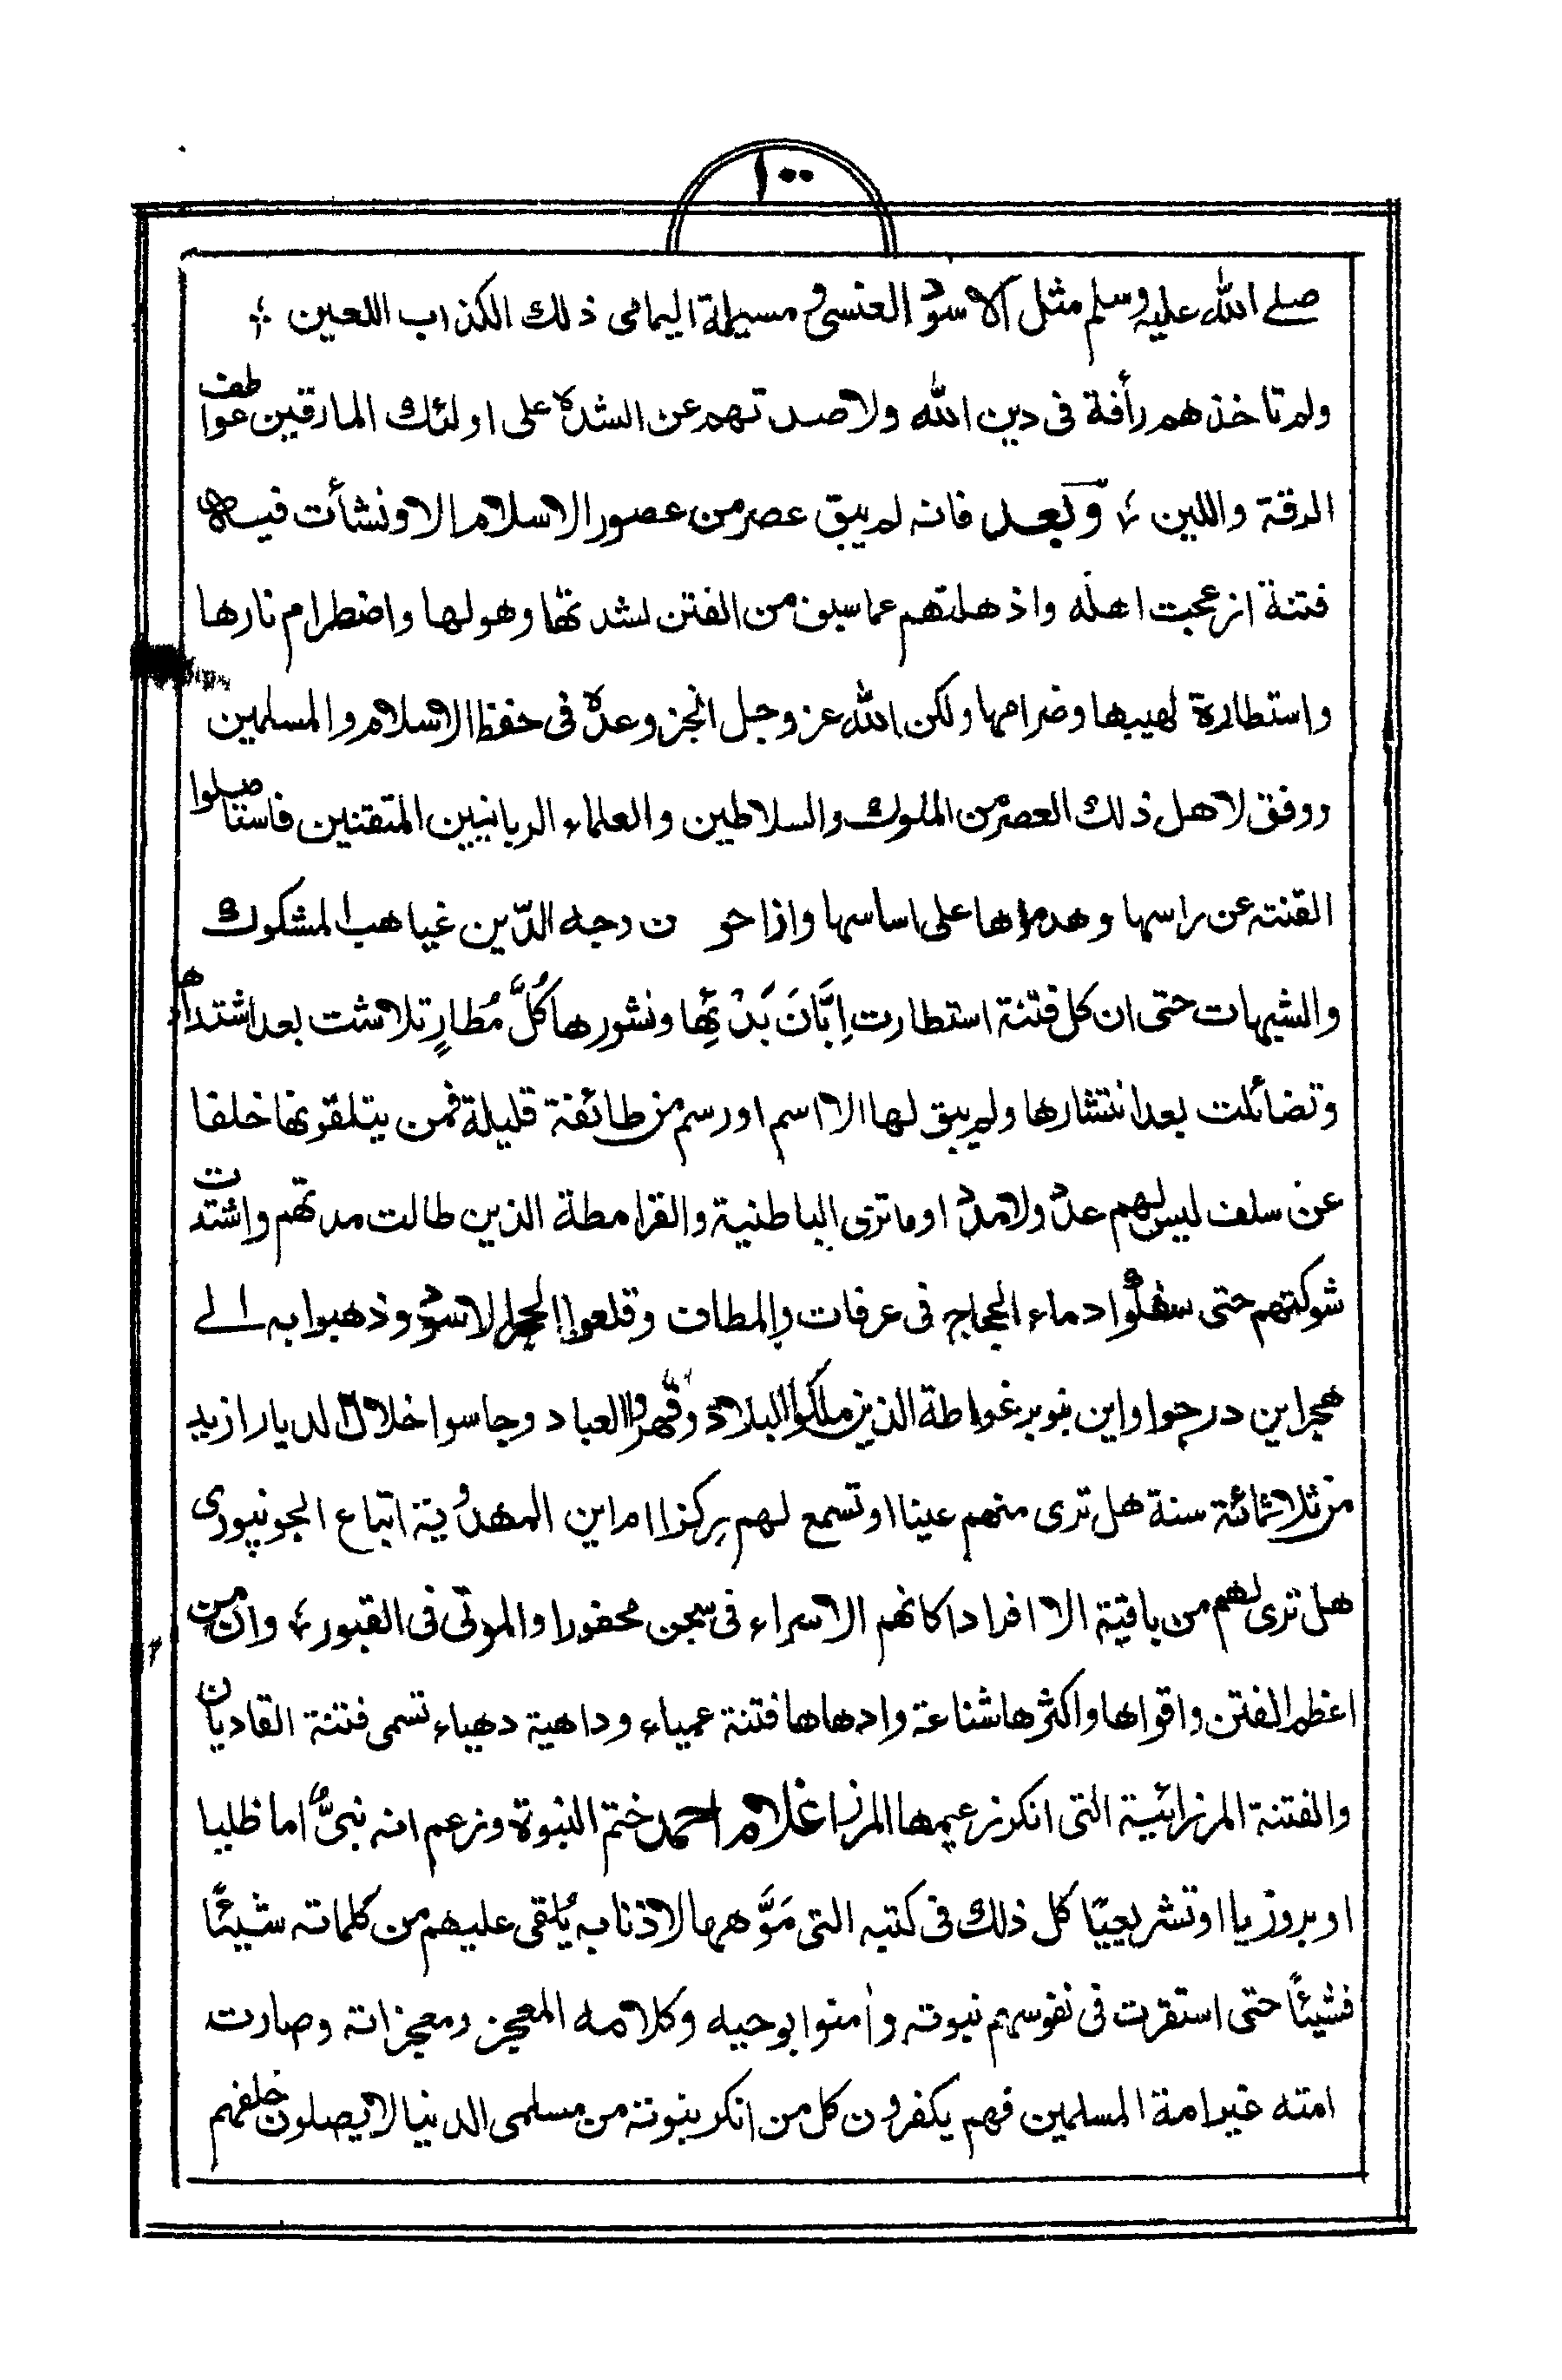 ١٠٠
صلے اللہ علیہ وسلم مثل الاسود العنسی و مسیلمة الیمامی ذلك الکذاب اللعین ؛
ولم تاخذهم رأفة فی دین اللہ ولا صدتهم عن الشدة علی اولئك المارقین عواطف
الرقة واللین ؛ وبعد فانه لم یبق عصر من عصور الاسلام الا ونشأت فیه
فتنة ازعجت اهله واذهلتهم عما سبق من الفتن لشدتها وهولها واضطرام نارها
واستطارة لهیبها وضرامها ولکن اللہ عز وجل انجز وعده فی حفظ الاسلام والمسلمین
ووفق لاهل ذلك العصر من الملوك والسلاطین والعلماء الربانیین المتقنین فاستاصلوا
القتنه عن راسها وهدموها علی اساسها وازاحو ن وجه الدّین غیاهب المشکوك
والشبهات حتی ان کل فتنة استطارت اِبَّانَ بَدْئِهَا ونشورها کُلَّ مُطارٍ تلاشت بعد اشتدادها
وتضائلت بعد انتشارها ولم یبق لها الا اسم او رسم من طائفة قلیلة فمن یتلقونها خلفا
عن سلف لیس لهم عدد ولا مدد او ما تری الباطنیة والقرامطة الذین طالت مدتهم واشتدت
شوکتهم حتی سفکوا دماء الحجاج فی عرفات والمطاف وقلعوا الحجر الاسود وذهبوا به الے
هجر این درجوا واین بنو برغواطة الذین ملکوا البلاد وقهروا العباد وجاسوا خلال الدیار ازید
من ثلاثمائة سنة هل تری منهم عینا او تسمع لهم رِکزا ام این المهدویة اتباع الجونپوری
هل تری لهم من باقیة الا افرادا کانهم الاسراء فی سجن محفورا والموتی فی القبور ؛ وان من
اعظم الفتن واقواها واکثرها شناعة وادهاها فتنة عمیاء وداهیة دهیاء تسمی فتنة القادیان
والفتنة المرزائیة التی انکر زعیمها المرزا غلام احمد ختم النبوة وزعم انه نبیٌّ اما ظلیا
او بروزیا او تشریعیًا کل ذلك فی کتبه التی مَوَّهَ بها لاذنابه یُلقی علیهم من کلماته شیئًا
فشیئًا حتی استقرت فی نفوسهم نبوته واٰمنوا بوحیه وکلامه المعجز ومعجزاته وصارت
امته غیر امة المسلمین فهم یکفرون کل من انکر بنبوته من مسلمی الدنیا لا یصلون خلفهم